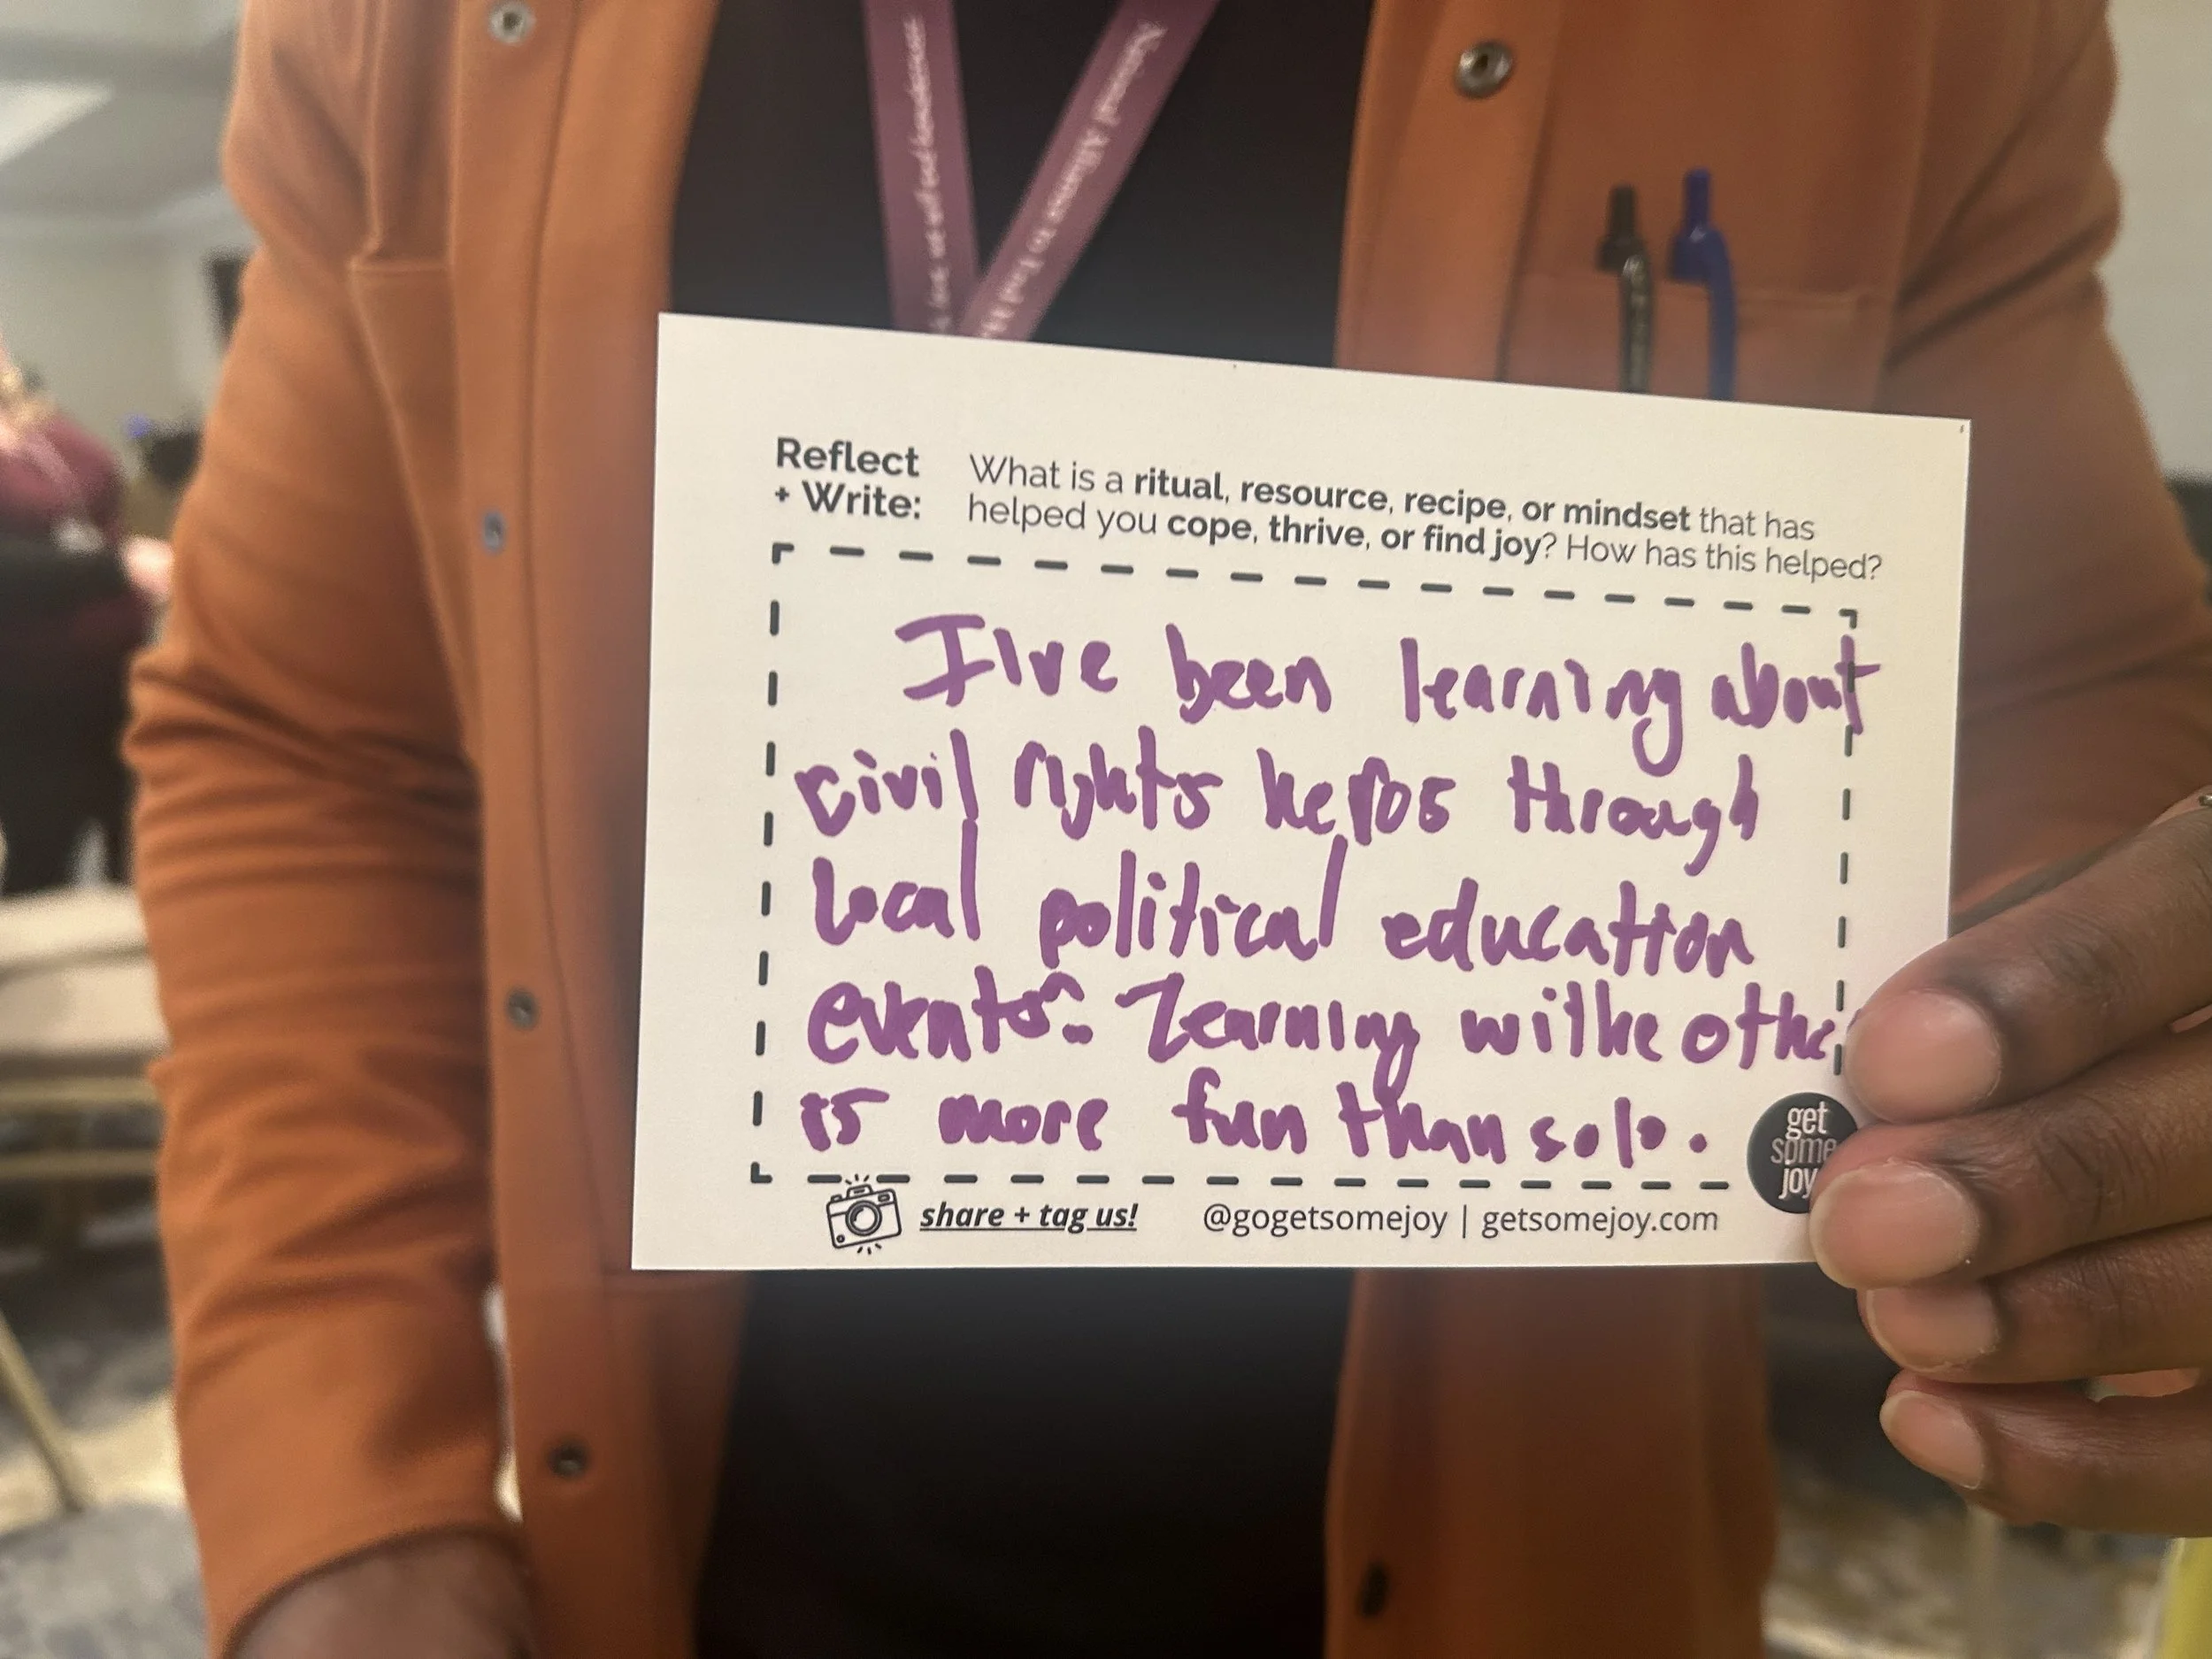 National Alliance to End
Reflect
+ Write:
What is a ritual, resource, recipe, or mindset that has
helped you cope, thrive, or find joy? How has this helped?
I've been learning about
civil rights heros through
local political education
events. Learning withe othe
is more fun than solo.
get
some
joy
share + tag us!
@gogetsomejoy | getsomejoy.com